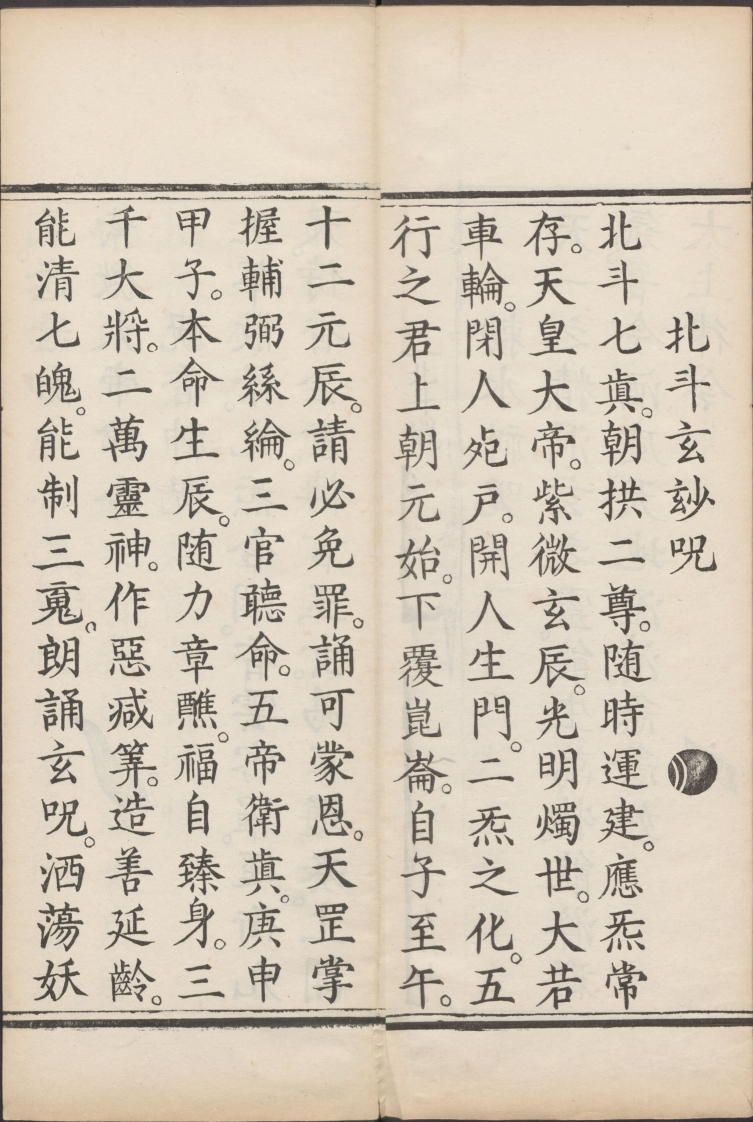 北斗玄玅呪
北斗七眞。朝拱二尊。随時運建。應炁常
存。天皇大帝。紫微玄辰。光明燭世。大若
車輪。閉人死戸。開人生門。二炁之化。五
行之君上朝元始。下覆崑崙。自子至午。
十二元辰。請必免罪。誦可蒙恩。天罡掌
握輔弼絲綸。三官聽命。五帝衛眞。庚申
甲子。本命生辰。随力章醮。福自臻身。三
千大將。二萬靈神。作惡減筭。造善延齡。
能清七魄。能制三䰟。朗誦玄呪。洒蕩妖